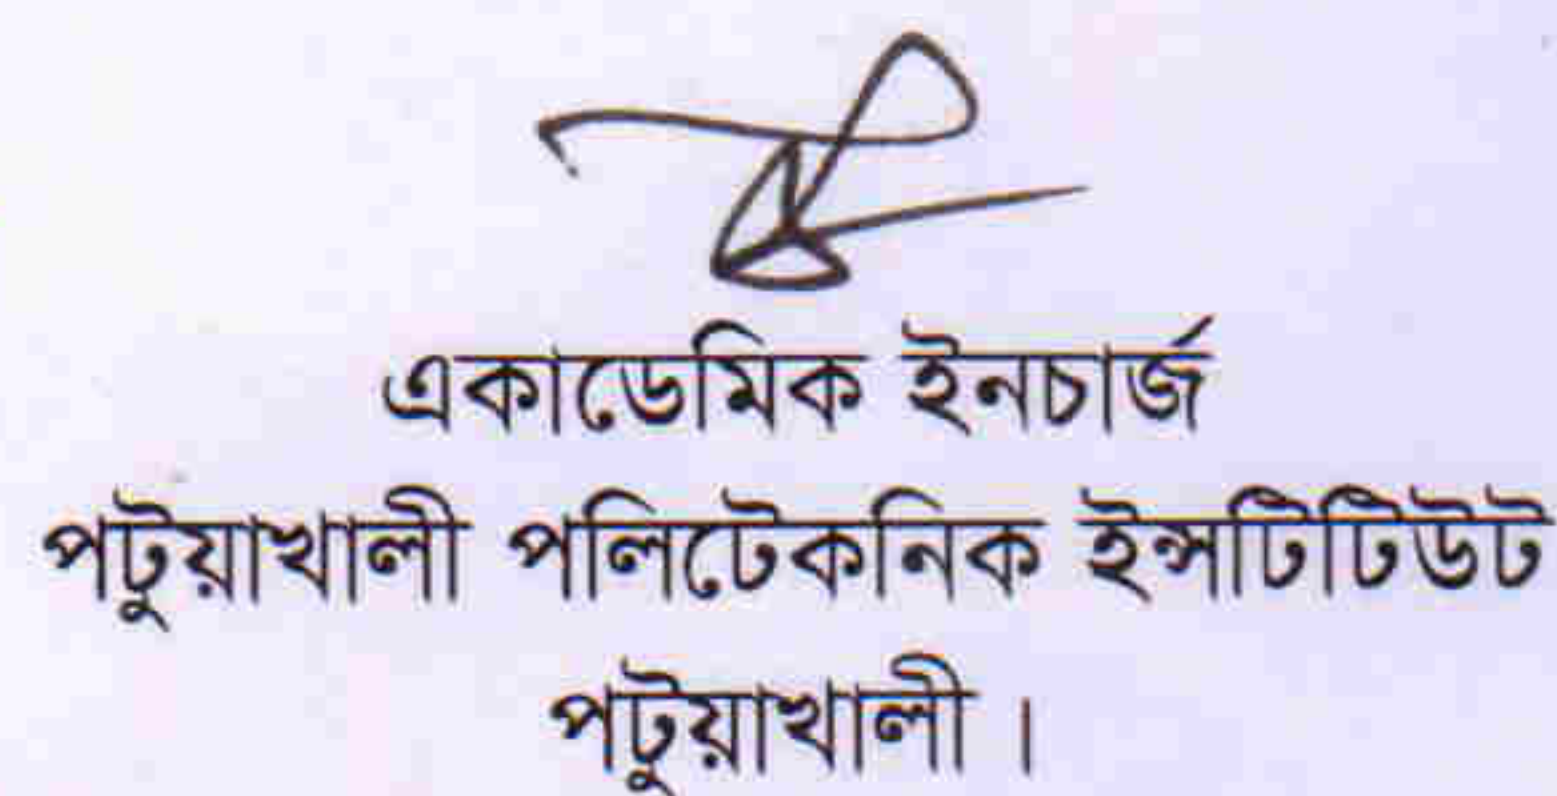 একাডেমিক ইনচার্জ
পটুয়াখালী পলিটেকনিক ইন্সটিটিউট
পটুয়াখালী ।